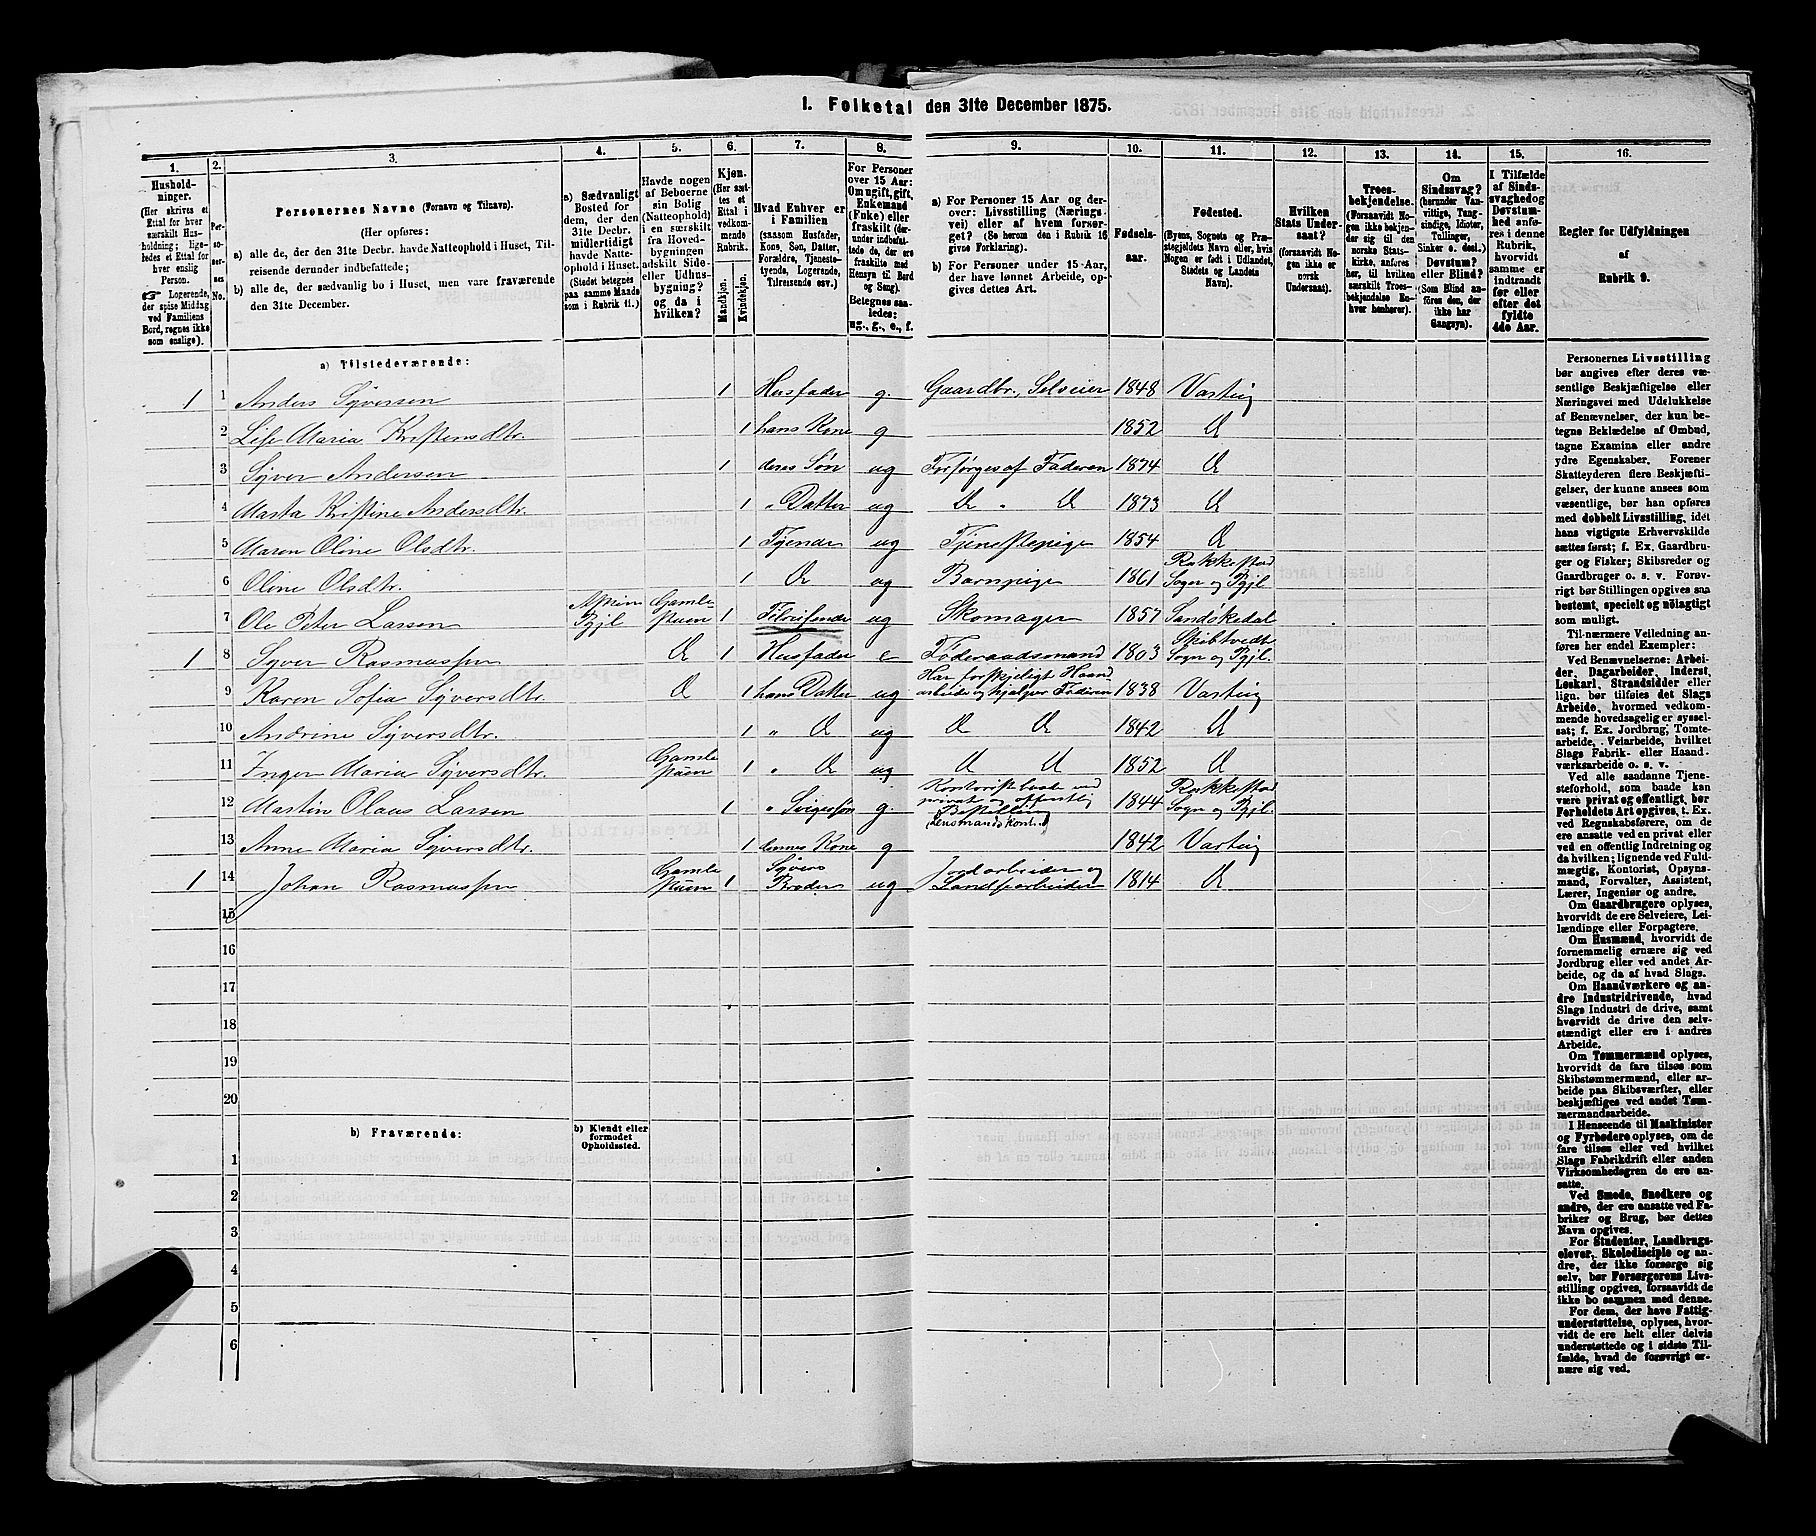 1. Folketal den 31te December 1875.
1. 2. 3. 4. 5. 6. 7. 8. 9. 10. 11. 12. 13. 14. 15. 16.
Hushold-
ninger.
(Her skrives et
Ettal for hver
særskilt Hus-
holdning; lige-
ledes et Ettal for
hver enslig
Person.
☞ Logerende,
der spise Middag
ved Familiens
Bord, regnes ikke
som enslige).
Per-
soner-
nes
No.
Personernes Navne (Fornavn og Tilnavn).
(Her opføres:
a) alle de, der den 31te Decbr. havde Natteophold i Huset, Til-
reisende derunder indbefattede;
b) alle de, der sædvanlig bo i Huset, men vare fraværende
den 31te December.
a) Sædvanligt
Bosted for
dem, der den
31te Decbr.
midlertidigt
havde Natte-
ophold i Huset.
(Stedet betegnes
paa samme Maade
som i Rubrik 11.)
Havde nogen
af Beboerne
sin Bolig
(Natteophold)
i en særskilt
fra Hoved-
bygningen
adskilt Side-
eller Udhus-
bygning?
og da i
hvilken?
Kjøn.
(Her sæt-
tes et
Ettal i
vedkom-
mende
Rubrik.
Mandkjøn.
Kvindekjøn.
Hvad Enhver er
i Familien
(saasom Husfader,
Kone, Søn, Datter,
Forældre, Tjeneste-
tyende, Logerende,
Tilreisende osv.)
For Personer
over 15 Aar:
Om ugift, gift,
Enkemand
(Enke) eller
fraskilt (der-
under indbefat-
tede de, der ere
fraskilte med
Hensyn til Bord
og Seng).
Betegnes saa-
ledes:
ug., g., e., f.
a) For Personer 15 Aar og der-
over: Livsstilling (Nærings-
vei) eller af hvem forsør-
get? (Se herom den i Rubrik 16
givne Forklaring).
b) For Personer under 15 Aar,
der have lønnet Arbeide, op-
gives dettes Art.
Fødsels-
aar.
Fødested.
(Byens, Sognets og Præ-
stegjeldets Navn eller, hvis
Nogen er født i Udlandet,
Stedets og Landets
Navn).
Hvilken
Stats Under-
saat?
(forsaavidt No-
gen ikke er
norsk
Undersaat).
Troes-
bekjendelse.
(Forsaavidt No-
gen ikke bekjen-
der sig til den
norske Stats-
kirke, anføres
her, til hvilken
særskilt Troes-
bekjendelse En-
hver henhører).
Om
Sindssvag?
(herunder Van-
vittige, Tung-
sindige, Idioter,
Tullinger,
Sinker o. desl.)
Døvstum?
eller Blind?
(Som Blind an-
føres den, der
ikke har
Gangsyn).
I Tilfælde
af Sinds-
svaghed og
Døvstum-
hed anfø-
res i denne
Rubrik,
hvorvidt
samme er
indtraadt
før eller
efter det
fyldte
4de Aar.
Regler for Udfyldningen
af
Rubrik 9.
a) Tilstedeværende:
1 1 Anders Syversen 1 Husfader g. Gaardbr., Selveier 1848 Varteig
2 Lise Maria Kristensdtr. 1 hans Kone g 1852 d
3 Syver Andersen 1 deres Søn ug Forsørges af Faderen 1874 d
4 Marta Kristine Andersdtr. 1 " Datter ug d " d 1873 d
5 Maren Oline Olsdtr. 1 Tyende ug Tjenestepige 1854 d
6 Oline Olsdtr. 1 d ug Barnpige 1861 Rakkestad
Sogn og Pgjl.
7 Ole Peter Larsen Pgjl Gamle
stuen 1 Tilreisende ug Skomager 1857
1 8 Syver Rasmussen d 1 Husfader e Føderaadsmand 1803 Skibtvedt
Sogn og Pgjl.
9 Karen Sofia Syversdtr. d 1 hans Datter ug Har forskjeligt Haand
arbeide og hjælper Faderen 1838 Varteig
10 Andrine Syversdtr. 1 " d ug d d 1842 d
11 Inger Maria Syversdtr. Gamle
stuen 1 " d ug d d 1852 d
12 Martin Olaus Larsen 1 " Svigersøn g. Kontorist baade ved
privat og offentlig
Bestilling
(Lensmandskont.) 1844 Rakkestad
Sogn og Pgjl.
13 Anne Maria Syversdtr. 1 dennes Kone g 1842 Varteig
1 14 Johan Rasmussen Gamle
stuen 1 Syvers
Broder ug Jordarbeider og
Landsarbeider 1814 d
15
16
17
18
19
20
b) Fraværende:
b) Kjendt eller
formodet
Opholdssted.
1
2
3
4
5
6
Personernes Livsstilling
bør angives efter deres væ-
sentlige Beskjæftigelse eller
Næringsvei med Udelukkelse
af Benævnelser, der kun be-
tegne Beklædelse af Ombud,
tagne Examina eller andre
ydre Egenskaber. Forener
Skatteyderen flere Beskjæfti-
gelser, der kunne ansees som
væsentlige, bør han opføres
med dobbelt Livsstilling, idet
hans vigtigste Erhvervskilde
sættes først; f. Ex. Gaardbru-
ger og Fisker; Skibsreder og
Gaardbruger o. s. v. Forøv-
rigt bør Stillingen opgives saa
bestemt, specielt og nøiagtigt
som muligt.
Til nærmere Veiledning an-
føres her endel Exempler:
Ved Benævnelserne: Arbei-
der, Dagarbeider, Inderst,
Løskarl, Strandsidder eller
lign. bør tilføies det Slags
Arbeide, hvormed vedkom-
mende hovedsagelig er syssel-
sat; f. Ex. Jordbrug, Tomte-
arbeide, Veiarbeide, hvilket
Slags Fabrik- eller Haand-
værksarbeide o. s. v.
Ved alle saadanne Tjene-
steforhold, som baade kan
være privat og offentligt, bør
Forholdets Art opgives, t. Ex.
ved Regnskabsførere, om de
ere ansatte ved en privat eller
ved en offentlig Indretning og
da hvilken; lignende ved Fuld-
mægtig, Kontorist, Opsyns-
mand, Forvalter, Assistent,
Lærer, Ingeniør og andre.
Om Gaardbrugere oplyses,
hvorvidt de ere Selveiere, Lei-
lændinge eller Forpagtere.
Om Husmænd, hvorvidt de
fornemmelig ernære sig ved
Jordbrug eller ved andet Ar-
beide, og da af hvad Slags.
Om Haandværkere og an-
dre Industridrivende, hvad
Slags Industri de drive, samt
hvorvidt de drive den selv-
stændigt eller ere i andres
Arbeide.
Om Tømmermænd oplyses,
hvorvidt de fare tilsøs som
Skibstømmermænd, eller ar-
beide paa Skibsværfter, eller
beskjæftiges ved andet Tøm-
mermandsarbeide.
I Henseende til Maskinister
og Fyrbødere oplyses, om de
fare tilsøs eller ved hvilket
Slags Fabrikdrift eller anden
Virksomhedsgren de ere an-
satte.
Ved Smede, Snedkere og
andre, der ere ansatte ved Fa-
briker og Brug, bør dettes
Navn opgives.
For Studenter, Landbrugs-
elever, Skoledisciple og an-
dre, der ikke forsørge sig
selv, bør Forsørgerens Livs-
stilling opgives, forsaavidt de
ikke bo sammen med denne.
For dem, der have Fattig-
understøttelse, oplyses, hvor-
vidt de ere helt eller delvis
understøttede og i sidste Til-
fælde, hvad de forøvrigt er-
nære sig ved.